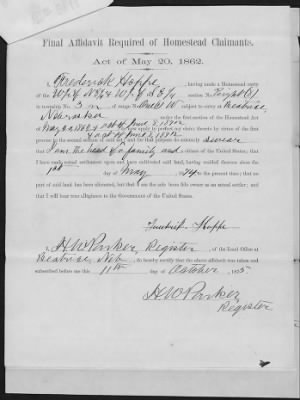 Final Affidavit Required of Homestead Claimants.
Act of May 20, 1862.
I, Frederick Hoppe, having made a Homestead entry
of the W½ of NE¼ & W½ of SE¼ section No.
in township No. 3 N of range No. W subject to entry at Beatrice
Nebraska under the first section of the Homestead Act
of May 20, 1862 & act of June 8, 1872 now apply to perfect my claim thereto by virtue of the first
section of and for that purpose do solemnly swear
that I am the head of a family and citizen of the United States; that I
have made actual settlement upon and have cultivated said land, having resided thereon since the
1st day of May 1874 to the present time; that no
part of said land has been alienated, but that I am the sole bona fide owner as an actual settler; and
that I will bear true allegiance to the Government of the United States.
Friedrich Hoppe
I, H W Parker, Register of the Land Office at
Beatrice, Neb, do hereby certify that the above affidavit was taken and
subscribed before me this 11th day of October 1875
H W Parker
Register